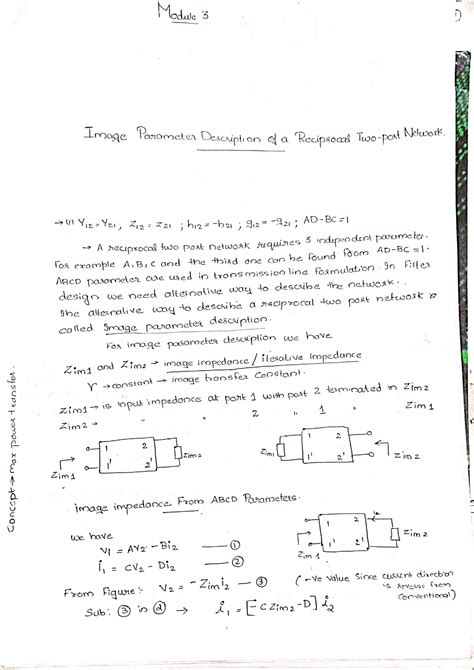 Module 3
Image Parameter Description of a Reciprocal Two-port Network.
Y12 = Y21, Z12 = Z21 ; h12 = -h21 ; g12 = -g21 ; AD-BC = 1
→ A reciprocal two port network requires 3 independent parameter.
For example A, B, C and the third one can be found from AD-BC = 1.
ABCD parameter are used in transmission line formulation. In Filter
design we need alternative way to describe the network.
The alternative way to describe a reciprocal two port network is
called Image parameter description.
For image parameter description we have
Zim1 and Zim2 → image impedance / iterative Impedance
γ → constant → image transfer constant.
Zim1 → is input impedance at port 1 with port 2 terminated in Zim2
Zim2 → " " 2 " 1 " Zim1
Concept → max power transfer.
1 2
1' 2'
Zim2
Zim1
1 2
1' 2'
Zim1
Zim2
image impedance From ABCD Parameters.
we have
V1 = AV2 - Bi2 — ①
i1 = CV2 - Di2 — ②
1 2
1' 2'
i2
Zim2
Zim1
From Figure: V2 = -Zim2i2 — ③
(-ve value since current direction
is reverse from
conventional)
Sub: ③ in ② → i1 = [-CZim2-D] i2